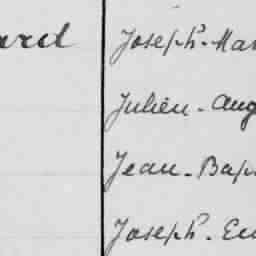 ard Joseph-Mar
Julien-Aug
Jean-Bap
Joseph-Eu